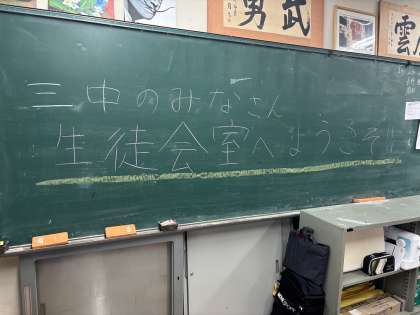 武勇
雲
三中のみなさん
生徒会室へようこそ!!